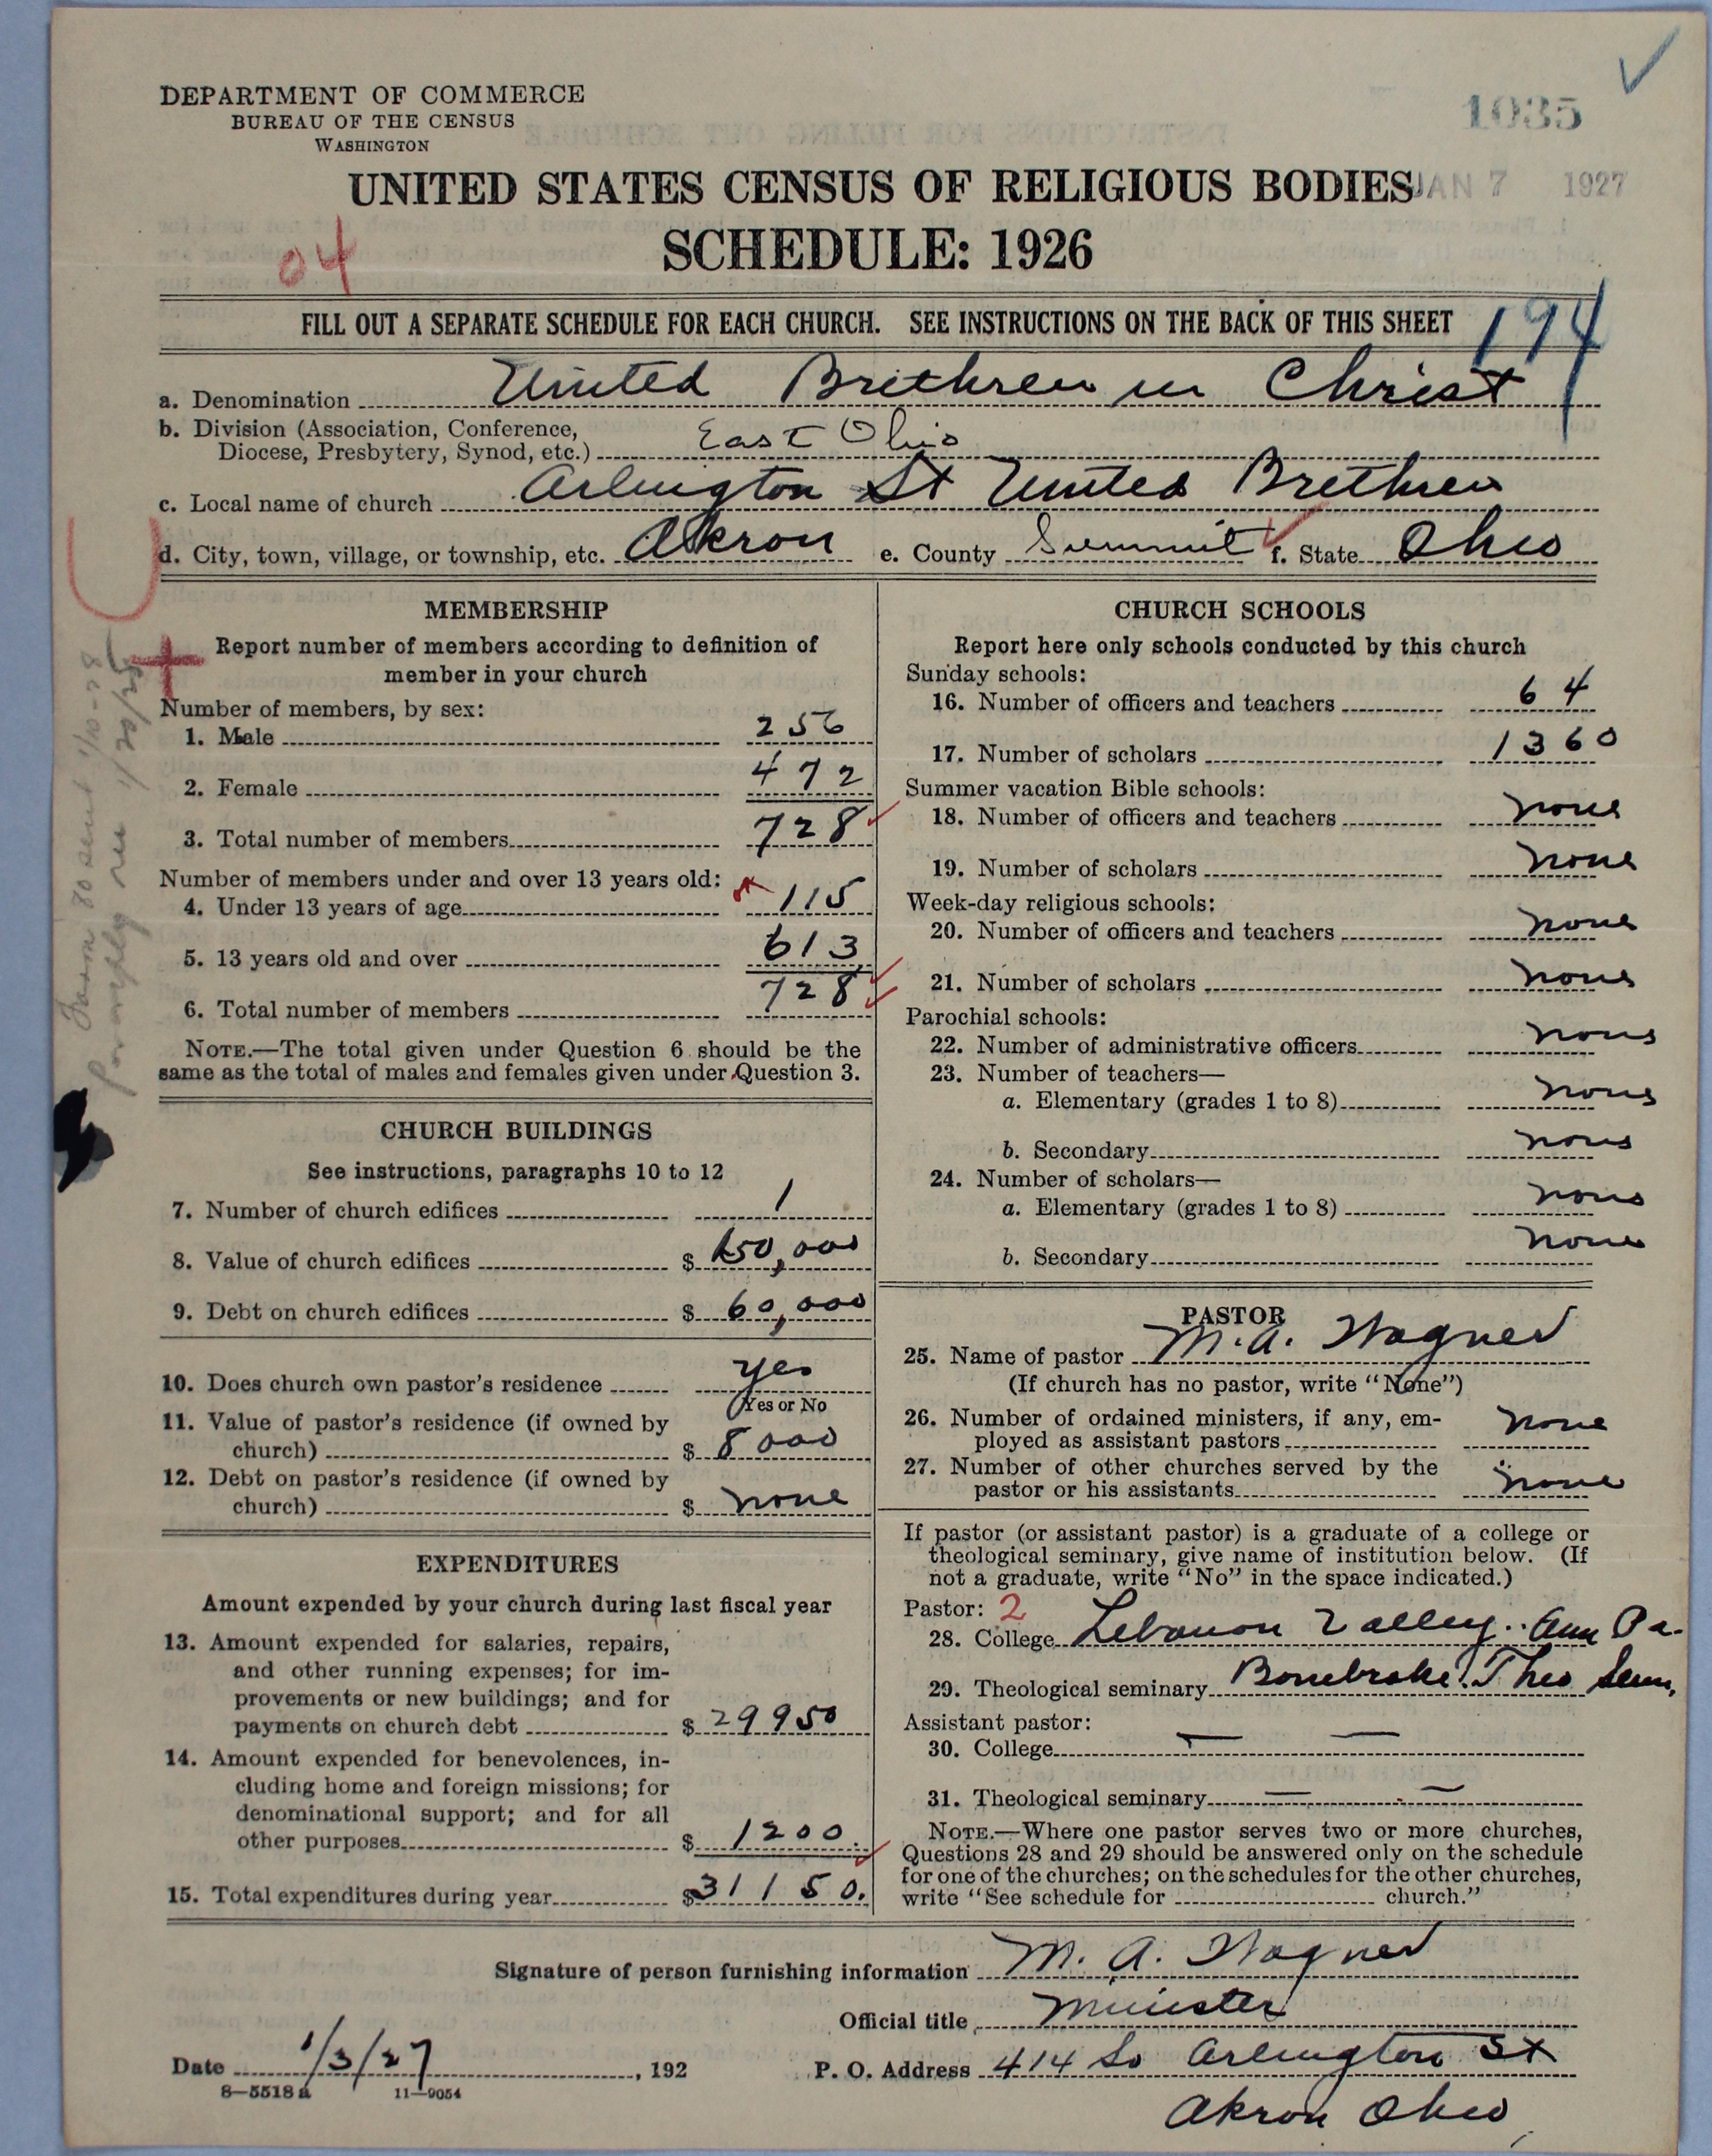 DEPARTMENT OF COMMERCE
BUREAU OF THE CENSUS
WASHINGTON
1035
UNITED STATES CENSUS OF RELIGIOUS BODIES
JAN 7 1927
SCHEDULE: 1926
04
FILL OUT A SEPARATE SCHEDULE FOR EACH CHURCH. SEE INSTRUCTIONS ON THE BACK OF THIS SHEET
194
a. Denomination United Brethren in Christ
b. Division (Association, Conference,
Diocese, Presbytery, Synod, etc.) East Ohio
c. Local name of church Arlington St United Brethren
d. City, town, village, or township, etc. Akron e. County Summit f. State Ohio
MEMBERSHIP
Report number of members according to definition of
member in your church
Number of members, by sex:
1. Male 256
2. Female 472
3. Total number of members 728
Number of members under and over 13 years old:
4. Under 13 years of age 115
5. 13 years old and over 613
6. Total number of members 728
NOTE.—The total given under Question 6 should be the
same as the total of males and females given under Question 3.
CHURCH BUILDINGS
See instructions, paragraphs 10 to 12
7. Number of church edifices 1
8. Value of church edifices $ 150,000
9. Debt on church edifices $ 60,000
10. Does church own pastor's residence yes
Yes or No
11. Value of pastor's residence (if owned by
church) $ 8000
12. Debt on pastor's residence (if owned by
church) $ none
EXPENDITURES
Amount expended by your church during last fiscal year
13. Amount expended for salaries, repairs,
and other running expenses; for im-
provements or new buildings; and for
payments on church debt $ 29950
14. Amount expended for benevolences, in-
cluding home and foreign missions; for
denominational support; and for all
other purposes $ 1200.
15. Total expenditures during year $ 31150.
CHURCH SCHOOLS
Report here only schools conducted by this church
Sunday schools:
16. Number of officers and teachers 64
17. Number of scholars 1360
Summer vacation Bible schools:
18. Number of officers and teachers none
19. Number of scholars none
Week-day religious schools:
20. Number of officers and teachers none
21. Number of scholars none
Parochial schools:
22. Number of administrative officers none
23. Number of teachers—
a. Elementary (grades 1 to 8) none
b. Secondary none
24. Number of scholars—
a. Elementary (grades 1 to 8) none
b. Secondary none
PASTOR
25. Name of pastor M. A. Wagner
(If church has no pastor, write "None")
26. Number of ordained ministers, if any, em-
ployed as assistant pastors none
27. Number of other churches served by the
pastor or his assistants none
If pastor (or assistant pastor) is a graduate of a college or
theological seminary, give name of institution below. (If
not a graduate, write "No" in the space indicated.)
Pastor: 2
28. College Lebanon Valley. Ann Pa.
29. Theological seminary Bonebrake Theo Sem.
Assistant pastor:
30. College — —
31. Theological seminary — —
NOTE.—Where one pastor serves two or more churches,
Questions 28 and 29 should be answered only on the schedule
for one of the churches; on the schedules for the other churches,
write "See schedule for church."
Signature of person furnishing information M. A. Wagner
Official title Minister
Date 1/3/27, 192 P. O. Address 414 So Arlington St
8—5518a 11—9054
Akron Ohio